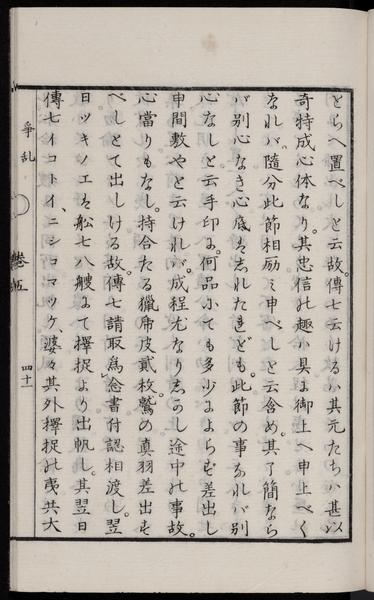 とらへ置べしと云故。傳七云けるハ其元たちハ甚以
奇特成心体なり。其忠信の趣ハ具に御上へ申上べく
なれバ隨分此節相励ミ申べしと云含め。其了簡なら
バ別心なき心底ハしれたれども。此節の事なれバ別
心なしと云手印に。何品にても多少によらず差出し
申間敷やと云けれバ。成程尤なりしかし途中の事故。
心當りもなし。持合たる獵虎皮貳枚。鷲の真羽差出す
べしとて出しける故。傳七請取為念書付認相渡し。翌
日ツキノエハ舩七八艘にて擇捉より出帆し。其翌日
傳七イコトイ、ニシコマツケ、婆々其外擇捉の夷共大
爭乱
巻五
四十